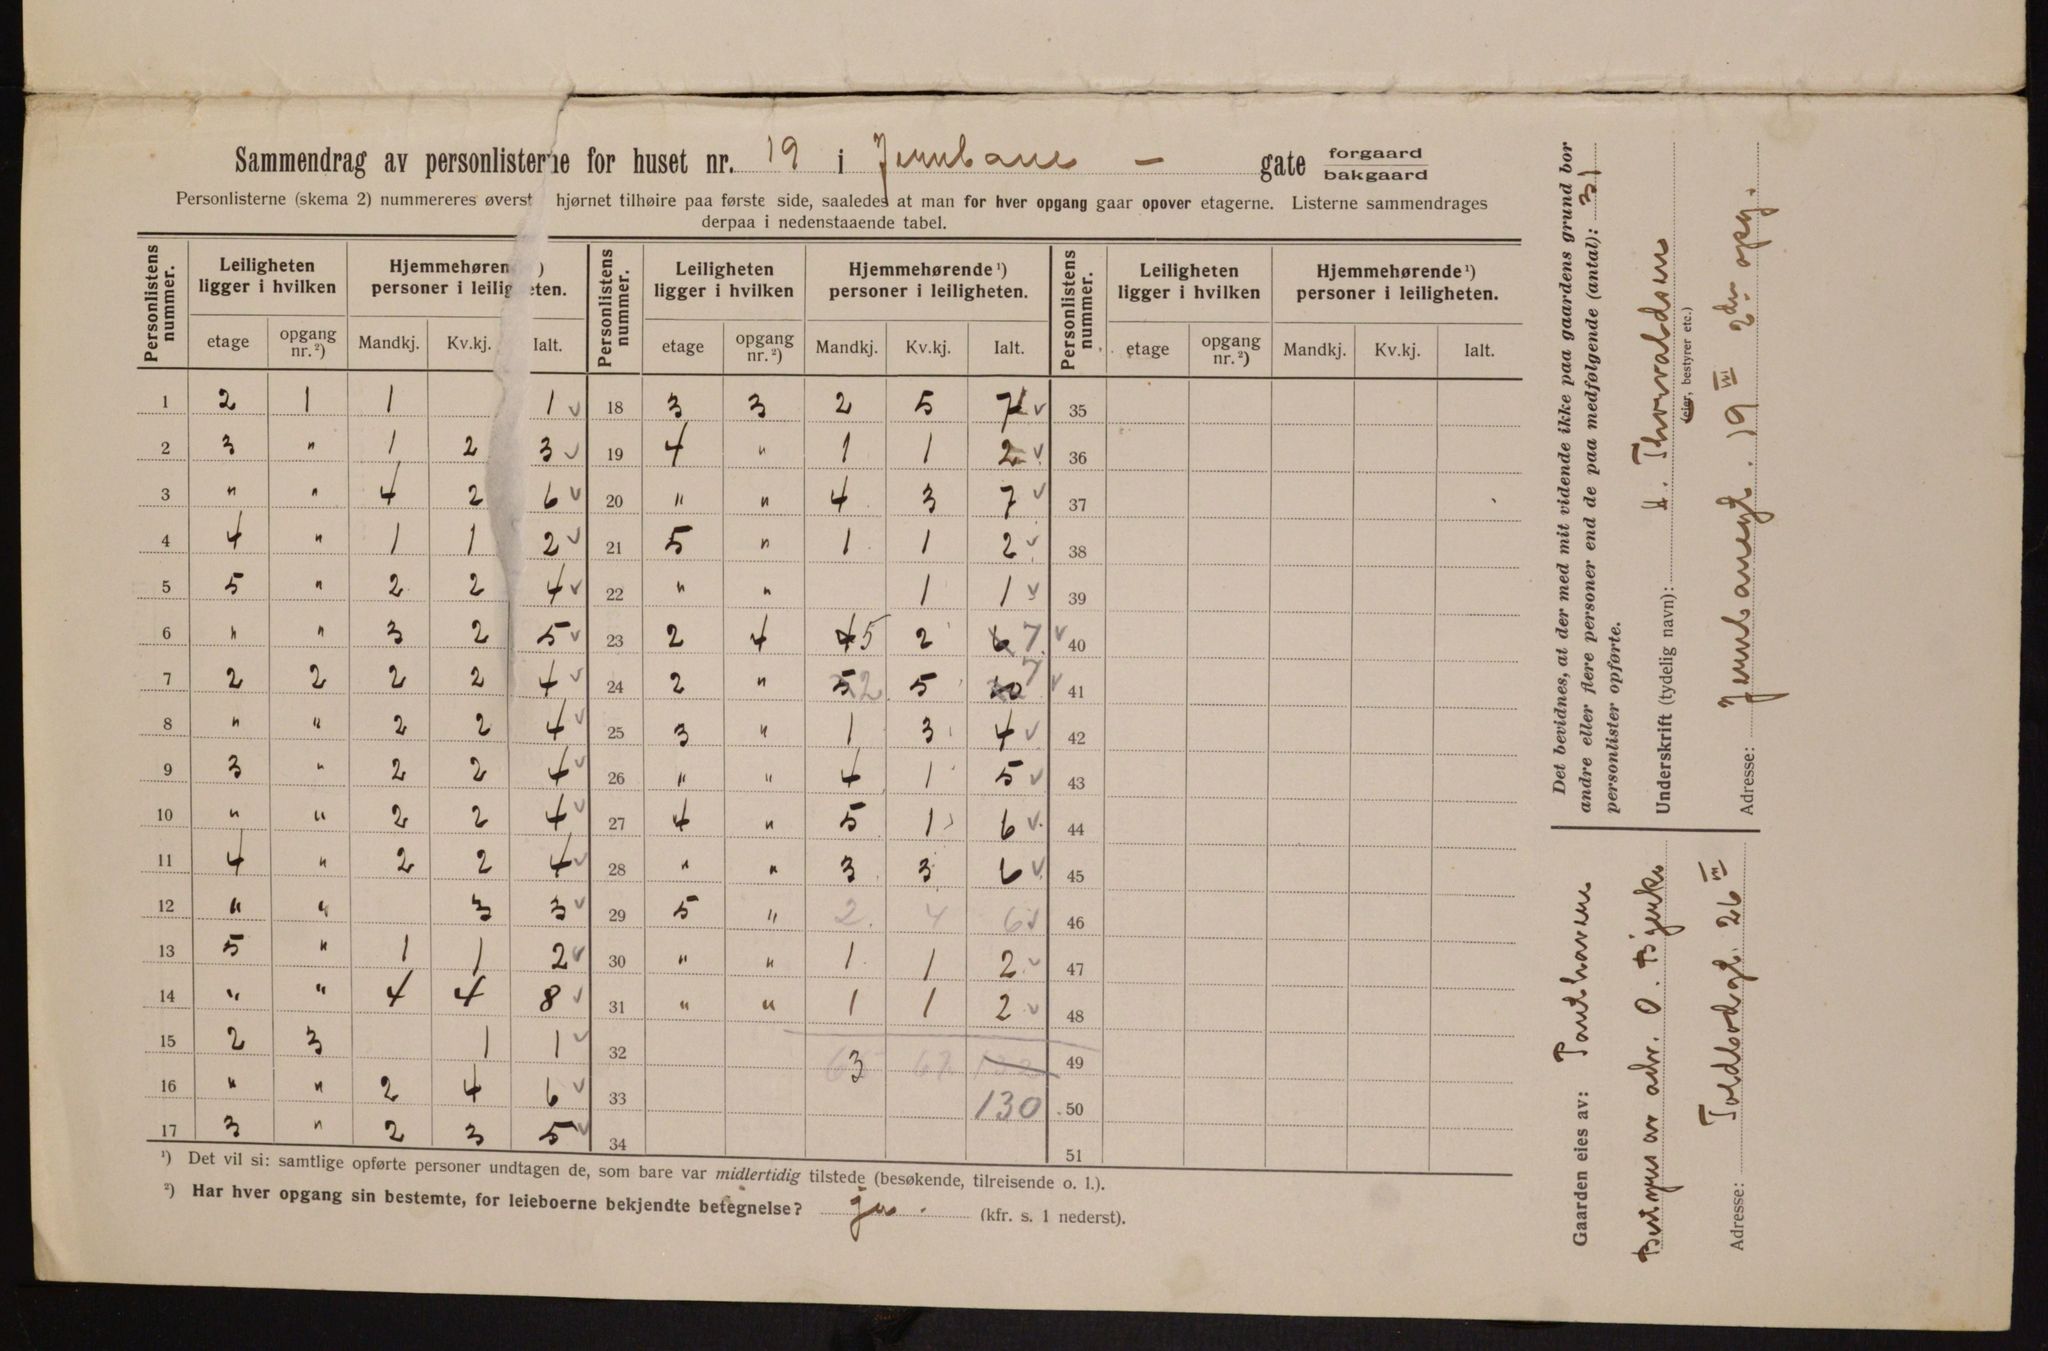 Sammendrag av personlisterne for huset nr. 19 i Jernbane – gate forgaard bakgaard
Personlisterne (skema 2) nummereres øverst hjørnet tilhøire paa første side, saaledes at man for hver opgang gaar opover etagerne. Listerne sammendrages
derpaa i nedenstaaende tabel.
Personlistens nummer. Leiligheten ligger i hvilken Hjemmehøren ¹) personer i leiligheten. Personlistens nummer. Leiligheten ligger i hvilken Hjemmehørende ¹) personer i leiligheten. Personlistens nummer. Leiligheten ligger i hvilken Hjemmehørende ¹) personer i leiligheten.
etage opgang nr. ²) Mandkj. Kv.kj. Ialt. etage opgang nr. ²) Mandkj. Kv.kj. Ialt. etage opgang nr. ²) Mandkj. Kv.kj. Ialt.
1 2 1 1 1 ✓ 18 3 3 2 5 7 ✓ 35
2 3 " 1 2 3 ✓ 19 4 " 1 1 2 ✓ 36
3 " " 4 2 6 ✓ 20 " " 4 3 7 ✓ 37
4 4 " 1 1 2 ✓ 21 5 " 1 1 2 ✓ 38
5 5 " 2 2 4 ✓ 22 " " 1 1 ✓ 39
6 " " 3 2 5 ✓ 23 2 4 4 5 2 6 7 ✓ 40
7 2 2 2 2 4 ✓ 24 2 " 5 2 5 10 7 ✓ 41
8 " " 2 2 4 ✓ 25 3 " 1 3 4 ✓ 42
9 3 " 2 2 4 ✓ 26 " " 4 1 5 ✓ 43
10 " " 2 2 4 ✓ 27 4 " 5 1 6 ✓ 44
11 4 " 2 2 4 ✓ 28 " " 3 3 6 ✓ 45
12 " " 3 3 ✓ 29 5 " 2 4 6 ✓ 46
13 5 " 1 1 2 ✓ 30 " " 1 1 2 ✓ 47
14 " " 4 4 8 ✓ 31 " " 1 1 2 ✓ 48
15 2 3 1 1 ✓ 32 3 49
16 " " 2 4 6 ✓ 33 130 50
17 3 " 2 3 5 ✓ 34 51
¹) Det vil si: samtlige opførte personer undtagen de, som bare var midlertidig tilstede (besøkende, tilreisende o. l.).
²) Har hver opgang sin bestemte, for leieboerne bekjendte betegnelse? ja. (kfr. s. 1 nederst).
Det bevidnes, at der med mit vidende ikke paa gaardens grund bor
andre eller flere personer end de paa medfølgende (antal): 31
personlister opførte.
Underskrift (tydelig navn): H. Thorvaldsen
(eier, bestyrer etc.)
Adresse: Jernbanegt. 19 III 2den opg.
Gaarden eies av:
Bestyres av adv. O. Bjerke
Adresse: Toldbodgt. 26 III